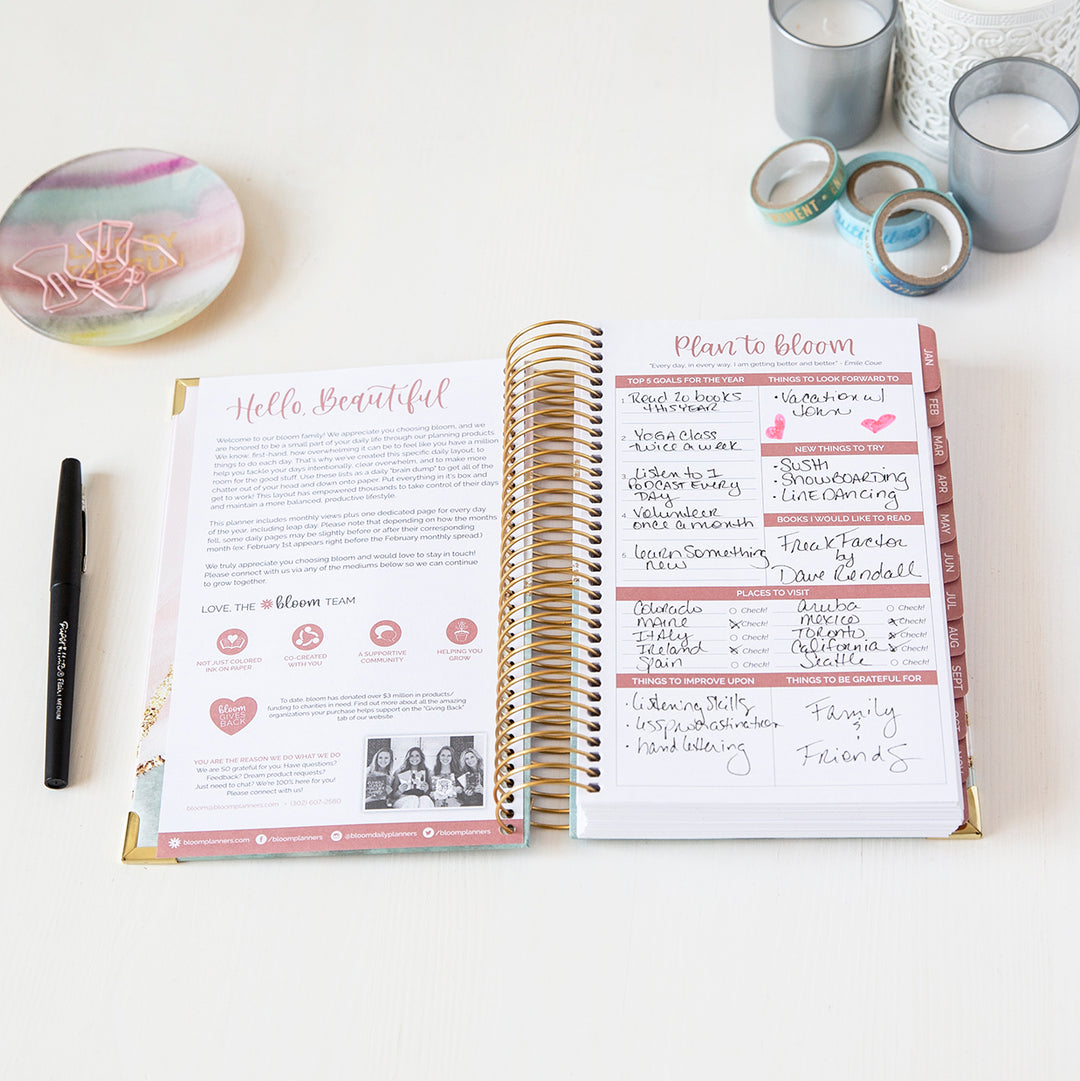 Hello, Beautiful
Welcome to our bloom family! We appreciate you choosing bloom, and we
are honored to be a small part of your daily life through our planning products.
We know, first-hand, how overwhelming it can be to feel like you have a million
things to do each day. That's why we've created this specific daily layout; to
help you tackle your days intentionally, clear overwhelm, and to make more
room for the good stuff. Use these lists as a daily "brain dump" to get all of the
chatter out of your head and down onto paper. Put everything in it's box, and
get to work! This layout has empowered thousands to take control of their days
and maintain a more balanced, productive lifestyle.
This planner includes monthly views plus one dedicated page for every day
of the year, including leap day. Please note that depending on how the months
fell, some daily pages may be slightly before or after their corresponding
month (ex: February 1st appears right before the February monthly spread.)
We truly appreciate you choosing bloom and would love to stay in touch!
Please connect with us via any of the mediums below so we can continue
to grow together.
LOVE, THE bloom TEAM
NOT JUST COLORED
INK ON PAPER
CO-CREATED
WITH YOU
A SUPPORTIVE
COMMUNITY
HELPING YOU
GROW
bloom
GIVES
BACK
To date, bloom has donated over $3 million in products/
funding to charities in need. Find out more about all the amazing
organizations your purchase helps support on the "Giving Back"
tab of our website.
YOU ARE THE REASON WE DO WHAT WE DO
We are SO grateful for you. Have questions?
Feedback? Dream product requests?
Just need to chat? We're 100% here for you!
Please connect with us!
bloom@bloomplanners.com • (302) 607-2580
bloomplanners.com /bloomplanners @bloomdailyplanners /bloomplanners
Plan to bloom
"Every day, in every way, I am getting better and better." - Emile Coue
TOP 5 GOALS FOR THE YEAR
1. Read 20 books
this year
2. Yoga class
twice a week
3. Listen to 1
podcast every
day
4. Volunteer
once a month
5. learn something
new
THINGS TO LOOK FORWARD TO
• Vacation w/
John
NEW THINGS TO TRY
• Sushi
• Snowboarding
• Line Dancing
BOOKS I WOULD LIKE TO READ
Freak Factor
by
Dave Rendall
PLACES TO VISIT
Colorado Check! Aruba Check!
Maine Check! Mexico Check!
Italy Check! Toronto Check!
Ireland Check! California Check!
Spain Check! Seattle Check!
THINGS TO IMPROVE UPON
• Listening skills
• less procrastination
• hand lettering
THINGS TO BE GRATEFUL FOR
Family
&
Friends
JAN
FEB
MAR
APR
MAY
JUN
JUL
AUG
SEPT
OCT
Flair MEDIUM